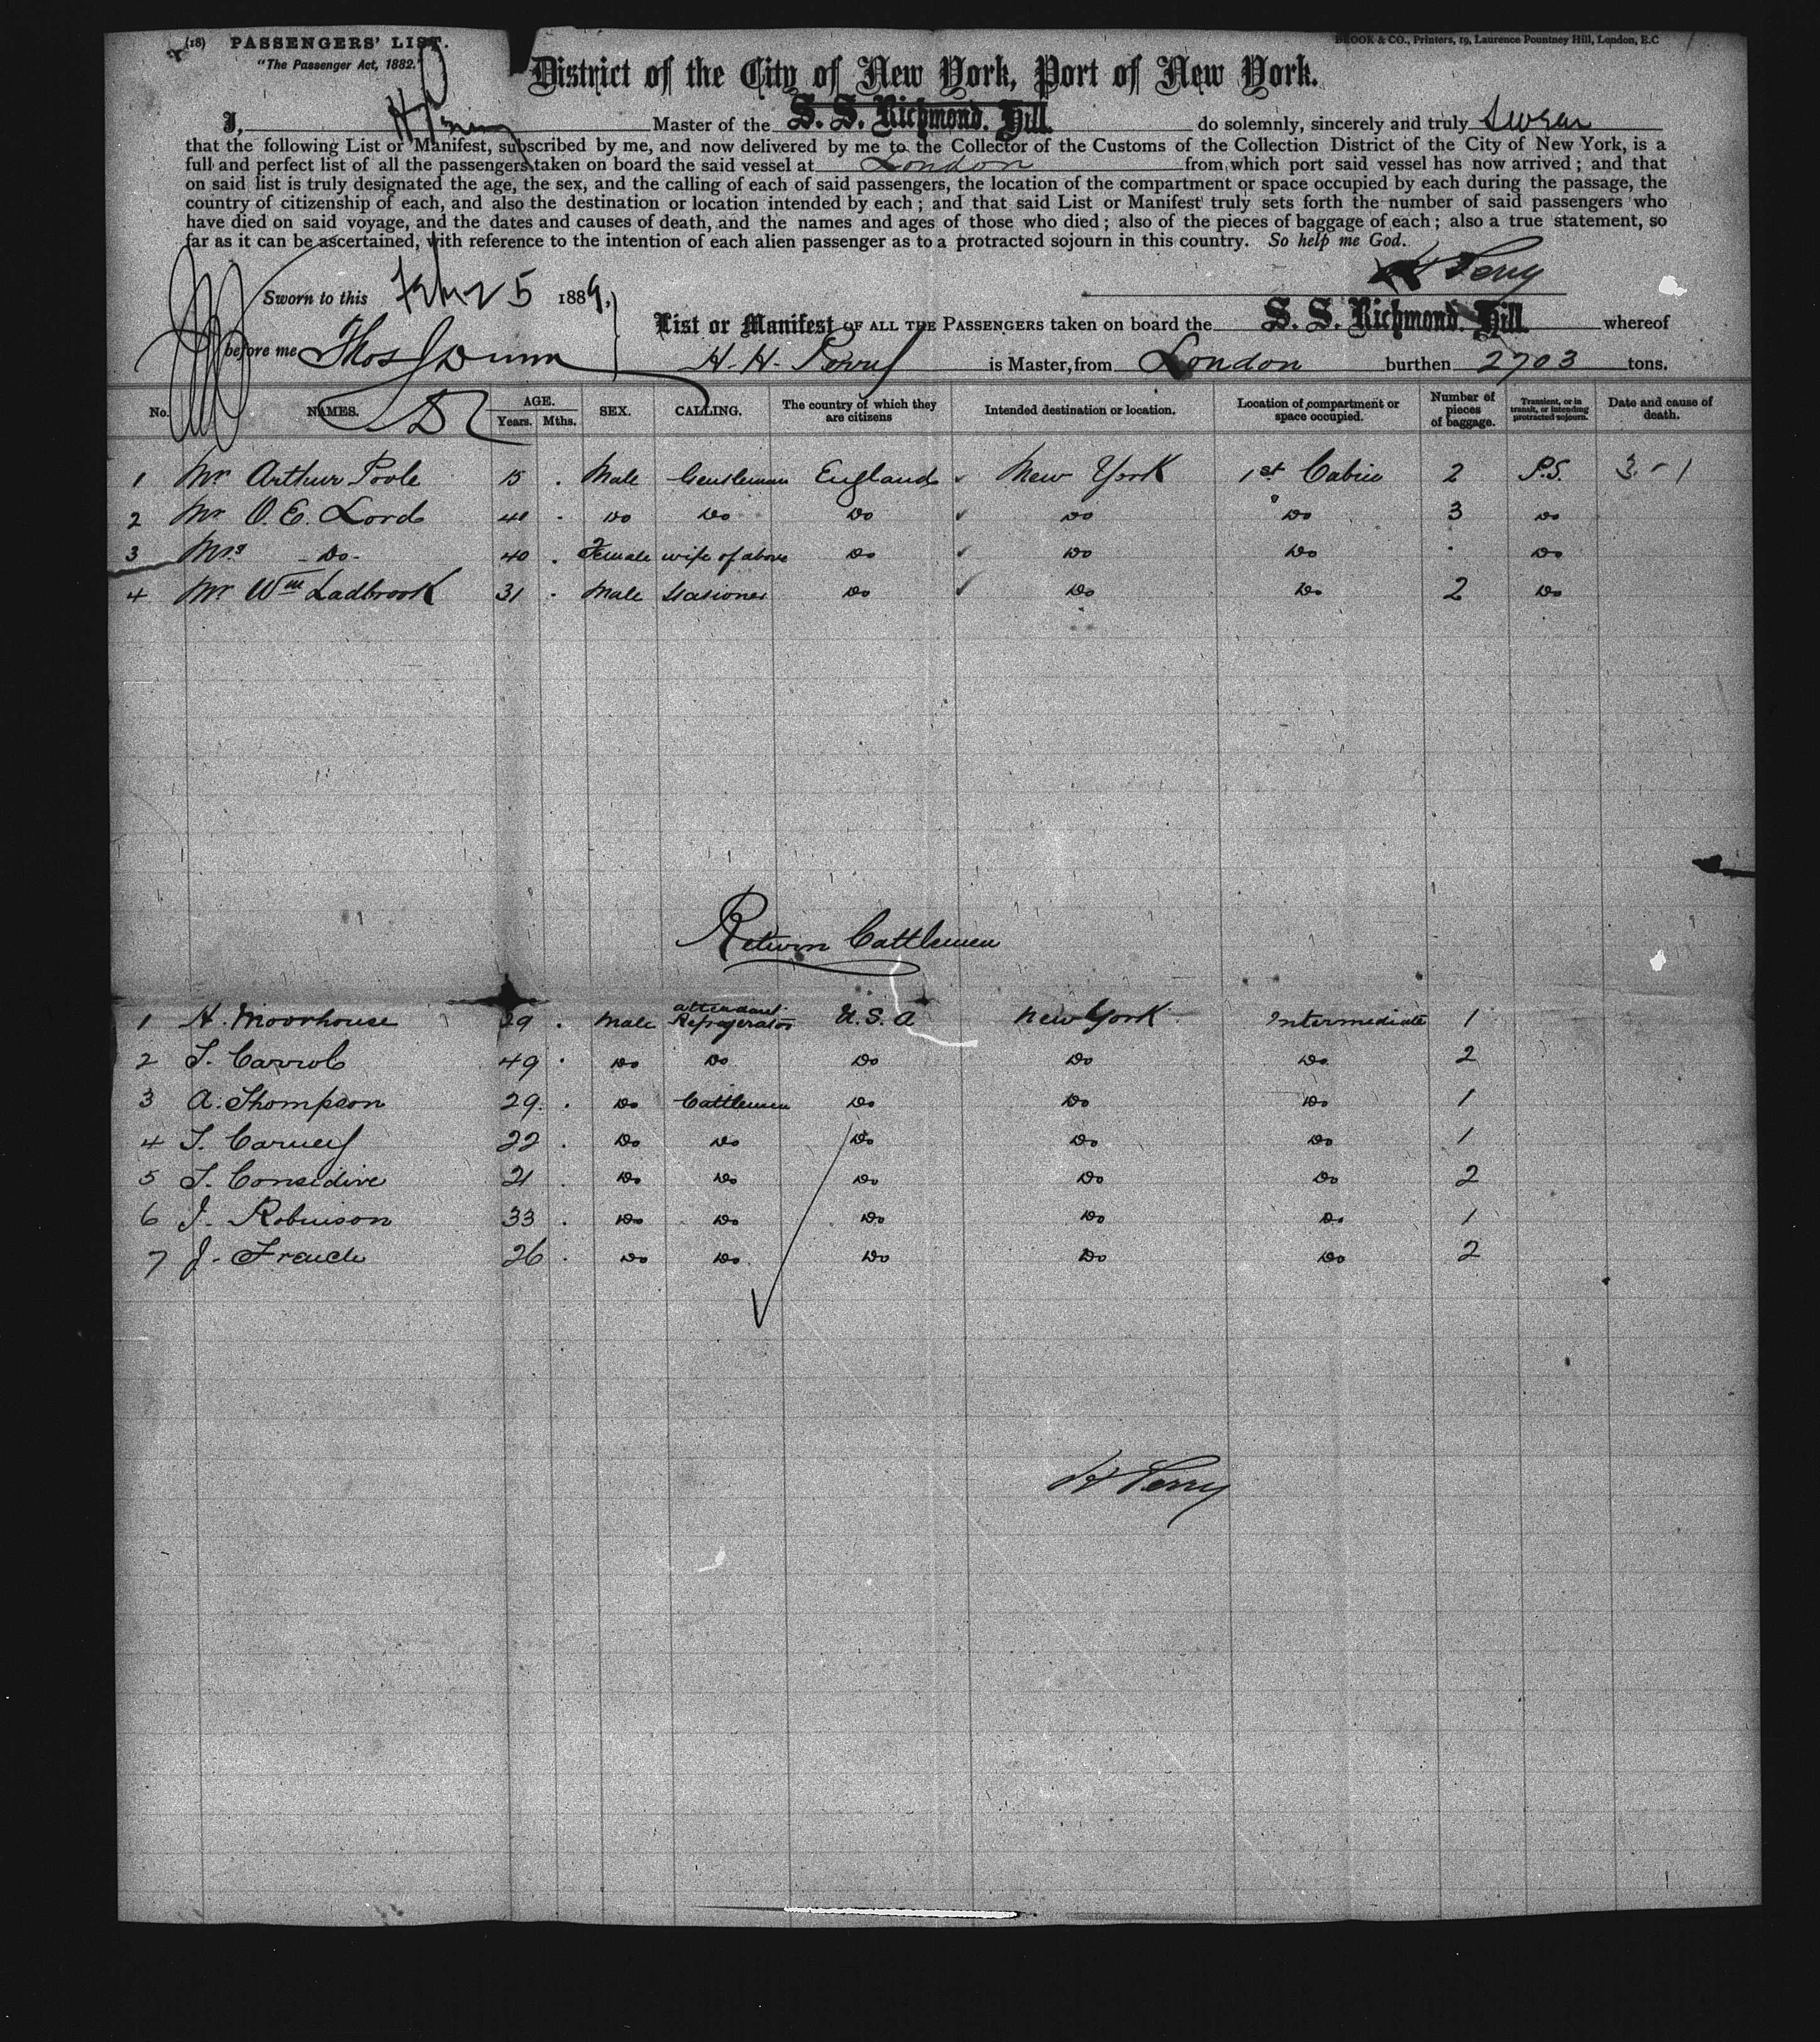 (18) PASSENGERS' LIST.
"The Passenger Act, 1882."
BROOK & CO., Printers, 19, Laurence Pountney Hill, London, E.C
District of the City of New York, Port of New York.
I, Master of the S. S. Richmond. Hill. do solemnly, sincerely and truly swear
that the following List or Manifest, subscribed by me, and now delivered by me to the Collector of the Customs of the Collection District of the City of New York, is a
full and perfect list of all the passengers taken on board the said vessel at London from which port said vessel has now arrived; and that
on said list is truly designated the age, the sex, and the calling of each of said passengers, the location of the compartment or space occupied by each during the passage, the
country of citizenship of each, and also the destination or location intended by each; and that said List or Manifest truly sets forth the number of said passengers who
have died on said voyage, and the dates and causes of death, and the names and ages of those who died; also of the pieces of baggage of each; also a true statement, so
far as it can be ascertained, with reference to the intention of each alien passenger as to a protracted sojourn in this country. So help me God.
H Perry
Sworn to this 25 1889,
List or Manifest OF ALL THE PASSENGERS taken on board the S. S. Richmond. Hill. whereof
before me Thos J Dunn
H. H. Perry is Master, from London burthen 2703 tons.
No. NAMES. AGE. Years. Mths. SEX. CALLING. The country of which they are citizens Intended destination or location. Location of compartment or space occupied. Number of pieces of baggage. Transient, or in transit, or intending protracted sojourn. Date and cause of death.
1 Mr Arthur Poole 15 . Male Gentleman England New York 1st Cabin 2 P.S. 3 - 1
2 Mr O. E. Lord 41 . Do Do Do Do Do 3 Do
3 Mrs - Do - 40 . Female wife of above Do Do Do . Do
4 Mr Wm Ladbrook 31 . Male Do Do Do 2 Do
Return Cattlemen
1 H. Moorhouse 29 . Male attendant Refrigerator U.S.A New York Intermediate 1
2 T. Carrol 49 . Do Do Do Do Do 2
3 A. Thompson 29 . Do Cattlemen Do Do Do 1
4 T. Carney 22 . Do Do Do Do Do 1
5 T. Considine 21 . Do Do Do Do Do 2
6 J. Robinson 33 . Do Do Do Do Do 1
7 J. French 26 . Do Do Do Do Do 2
H Perry